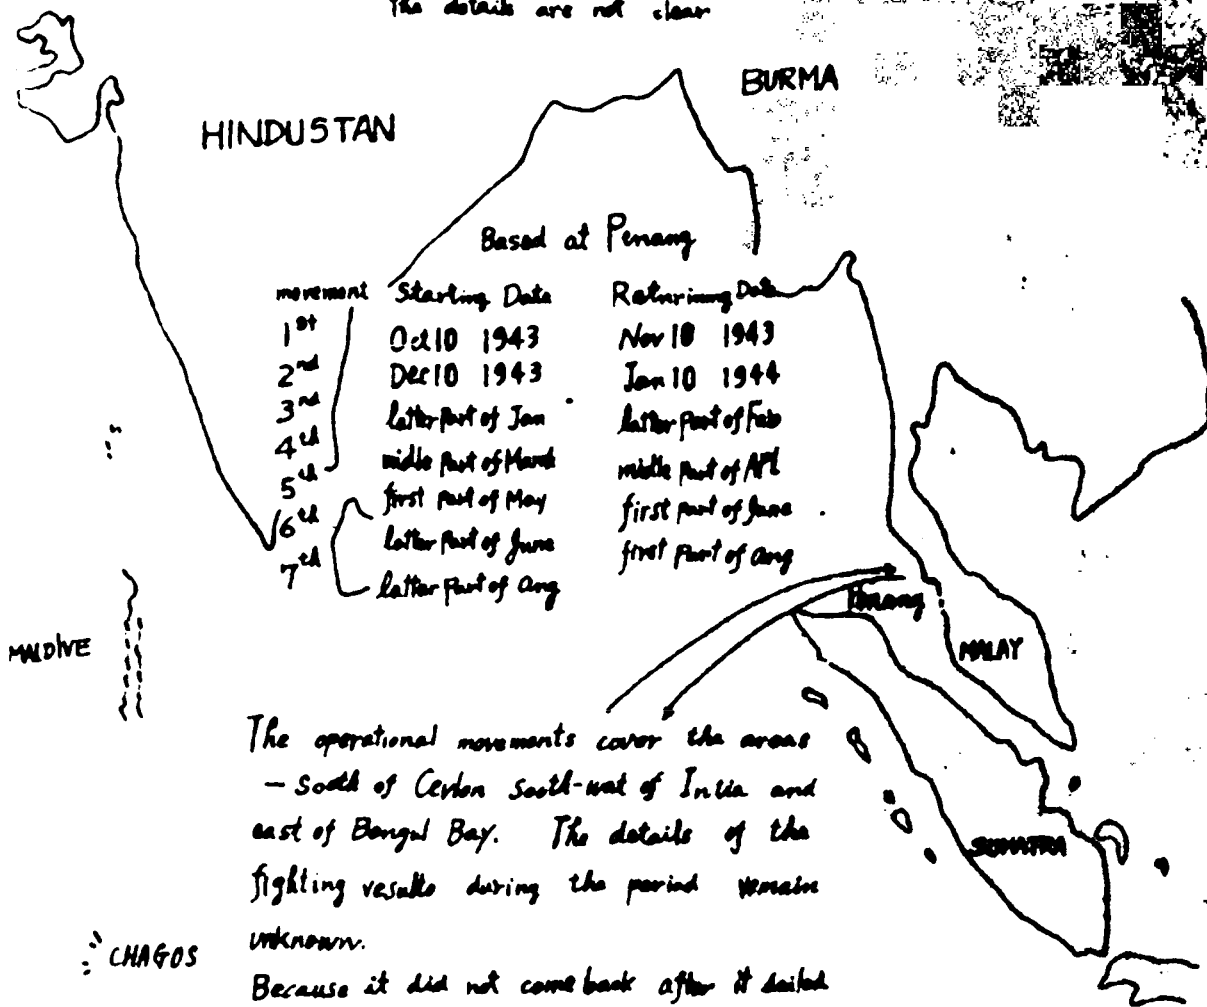 The details are not clear
BURMA
HINDUSTAN
Based at Penang
movement Starting Data Returining Data
1st Oct 10 1943 Nov 10 1943
2nd Dec 10 1943 Jan 10 1944
3rd latter part of Jan latter part of Feb
4th midle part of March midle part of APL
5th first part of May first part of June
6th latter part of June first part of Aug
7th latter part of Aug
Penang
MALDIVE
MALAY
The operational movements cover the areas
— South of Ceylon South-west of India and
east of Bengal Bay. The details of the
SUMATRA
fighting results during the period remain
unknown.
CHAGOS
Because it did not come back after it sailed